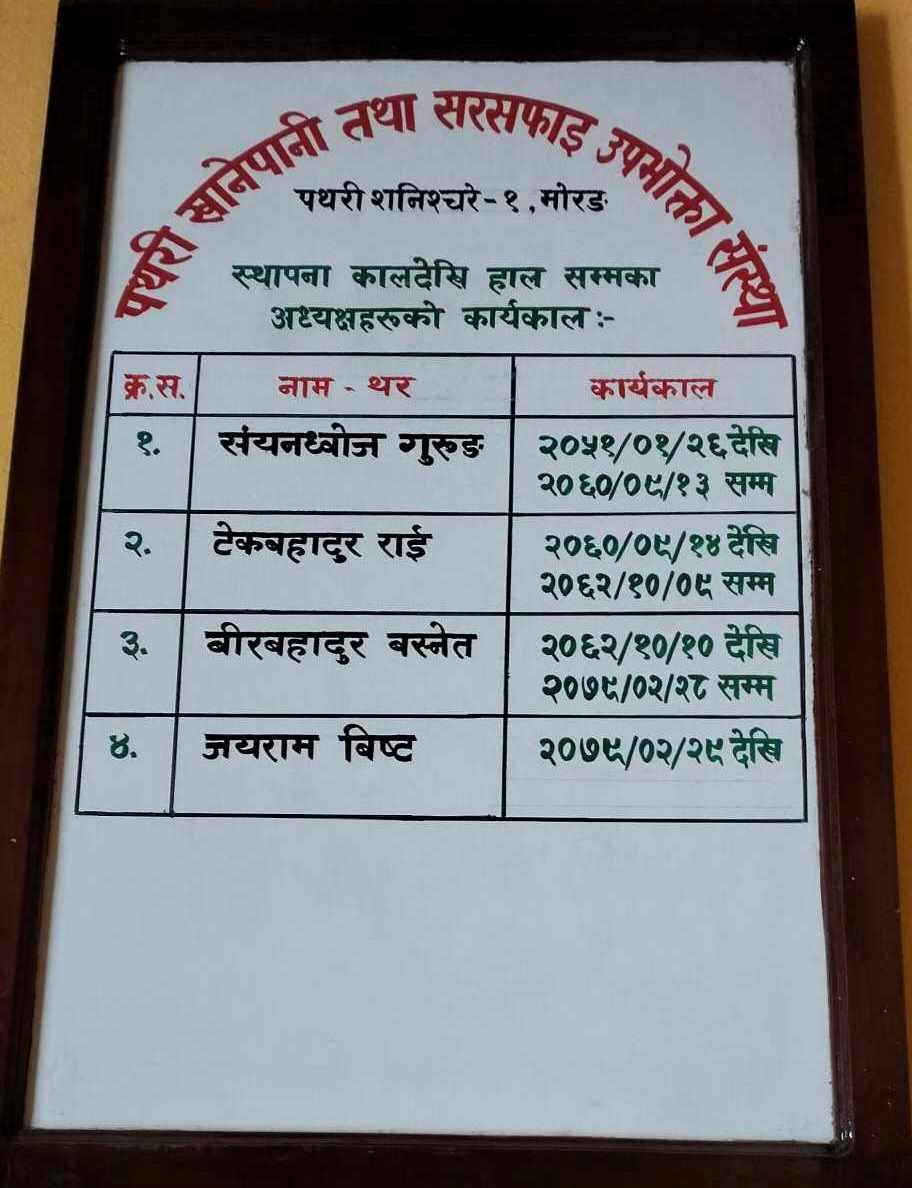 पथरी खानेपानी तथा सरसफाइ उपभोक्ता संस्था
पथरी शनिश्चरे-१, मोरङ
स्थापना कालदेखि हाल सम्मका
अध्यक्षहरूको कार्यकाल :-
क्र.स. नाम - थर कार्यकाल
१. संयनध्वोज गुरुङ २०५१/०१/२६ देखि
२०६०/०९/१३ सम्म
२. टेकबहादुर राई २०६०/०९/१४ देखि
२०६२/१०/०९ सम्म
३. बीरबहादुर बस्नेत २०६२/१०/१० देखि
२०७९/०२/२८ सम्म
४. जयराम बिष्ट २०७९/०२/२९ देखि